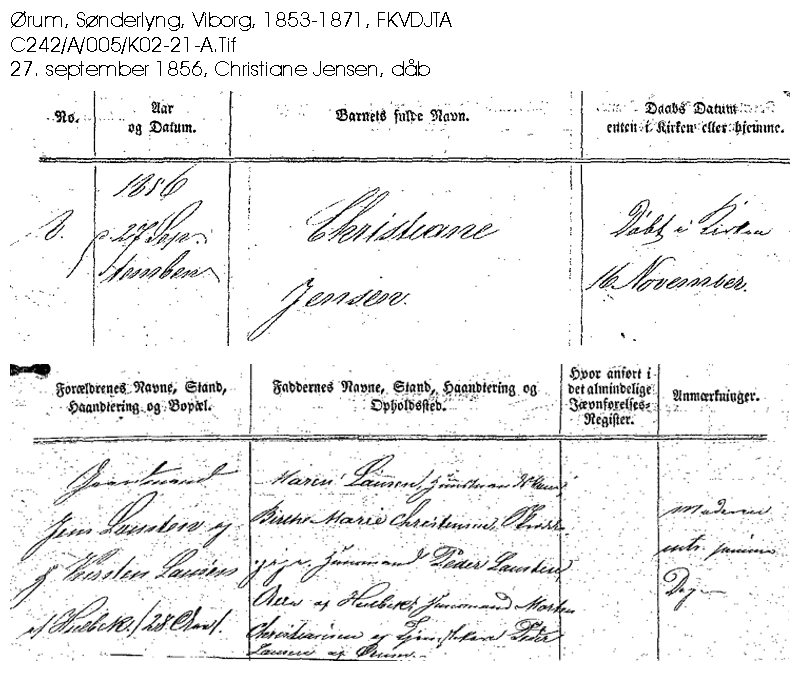 Ørum, Sønderlyng, Viborg, 1853-1871, FKVDJTA
C242/A/005/K02-21-A.Tif
27. september 1856, Christiane Jensen, dåb
No.
Aar
og Datum.
Barnets fulde Navn.
Daabs Datum
enten i Kirken eller hjemme.
1856
8.
27 Sep-
tember
Christiane
Jensen.
Døbt i Kirken
16 November.
Forældrenes Navne, Stand,
Haandtering og Bopæl.
Faddernes Navne, Stand, Haandtering og
Opholdssted.
Hvor anført i
det almindelige
Jævnførelses-
Register.
Anmærkninger.
Gaardmand
Jens Laursen og
Kirsten Laursen
af Hulbek. (28 Aar).
Maren Laursen,
Birthe Marie Christensen,
pige, Huusmand Peder Laursen,
af Hulbek, Huusmand Morten
Christiansen og Peder
Laursen af Ørum.
Moderen
intr. samme
Dag